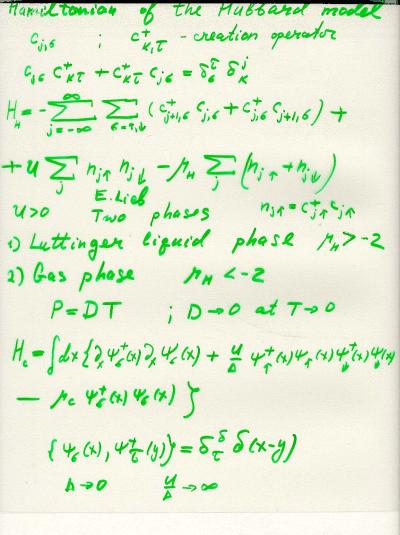 Hamiltonian of the Hubbard model
c_{j,σ} ; c^+_{k,τ} - creation operator
c_{jσ} c^+_{kτ} + c^+_{kτ} c_{jσ} = δ^τ_σ δ^j_k
H_H = - ∑_{j=-∞}^{∞} ∑_{σ=↑,↓} (c^+_{j+1,σ} c_{j,σ} + c^+_{j,σ} c_{j+1,σ}) +
+ u ∑_j n_{j↑} n_{j↓} - μ_H ∑_j (n_{j↑} + n_{j↓})
E. Lieb
u>0 Two phases n_{j↑} = c^+_{j↑} c_{j↑}
1) Luttinger liquid phase μ_H > -2
2) Gas phase μ_H < -2
P = DT ; D → 0 at T → 0
H_c = ∫dx { ∂_x ψ^+_σ(x) ∂_x ψ_σ(x) + u/Δ ψ^+_↑(x) ψ_↑(x) ψ^+_↓(x) ψ_↓(x)
- μ_c ψ^+_σ(x) ψ_σ(x) }
{ψ_σ(x), ψ^+_τ(y)} = δ^σ_τ δ(x-y)
Δ → 0 u/Δ → ∞